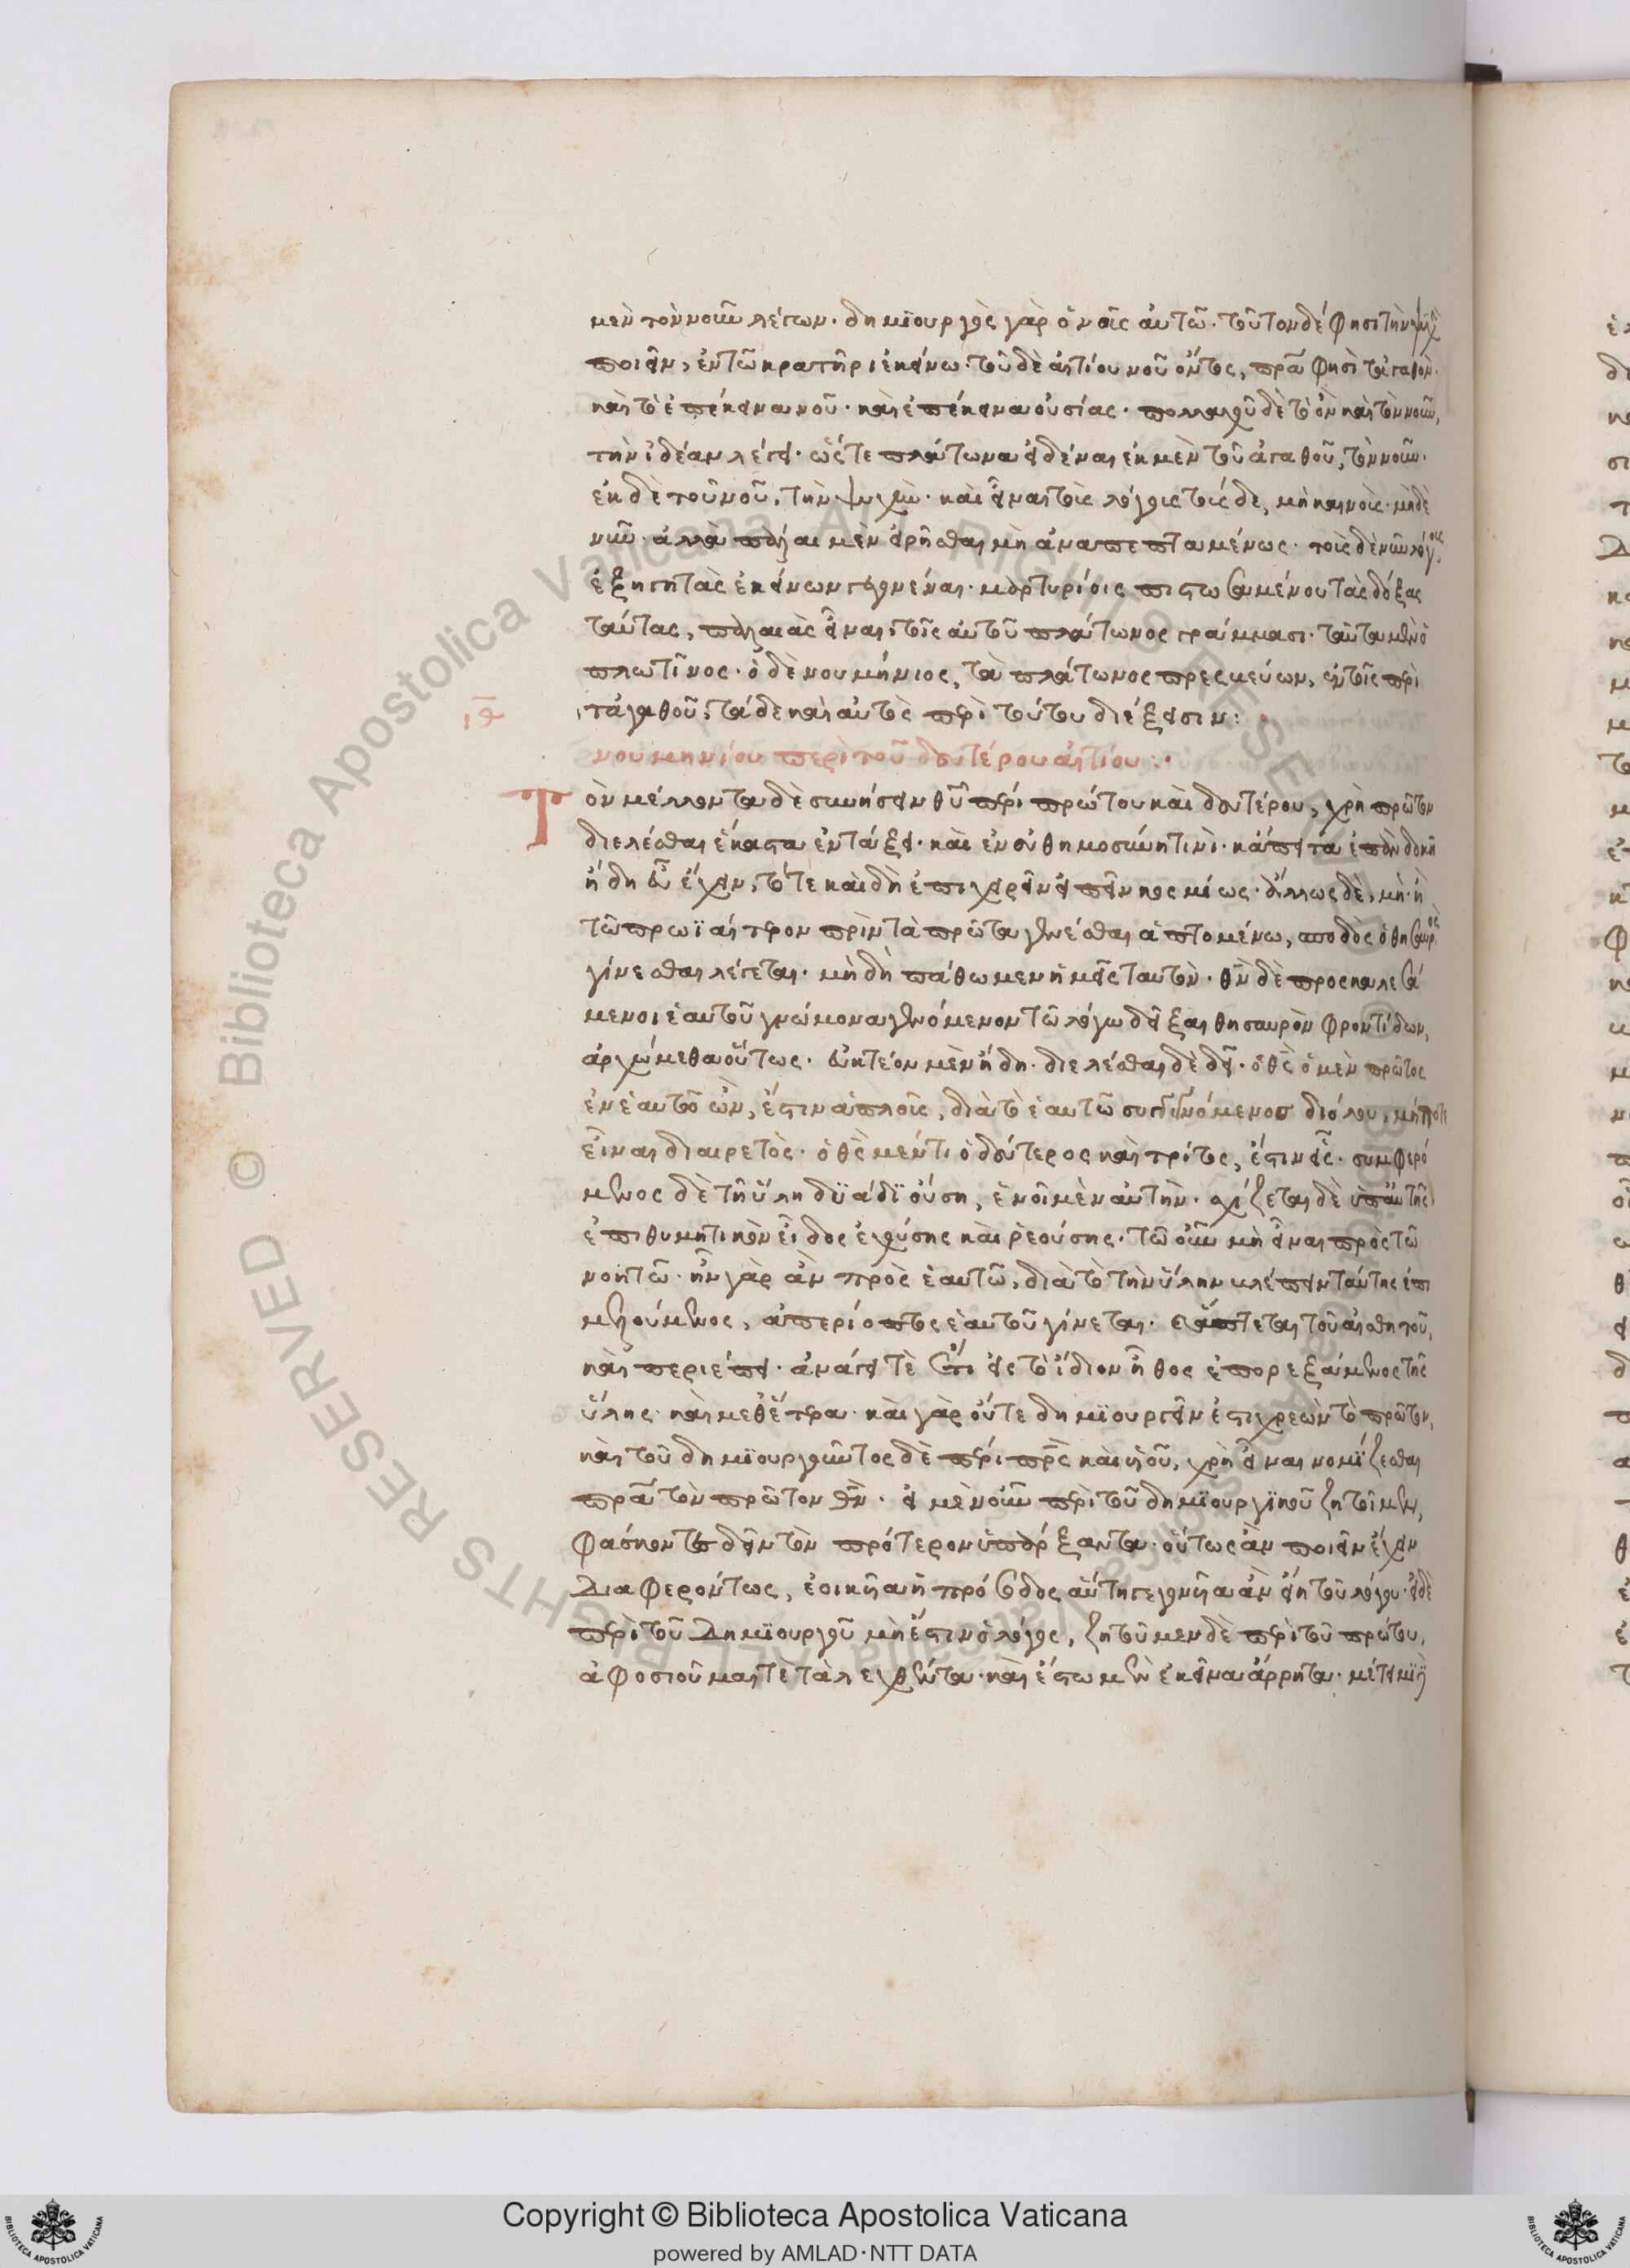 μὲν τὸν νοῦν λέγων· δημϊουργὸς γὰρ ὁ νοῦς αὐτῶ· τοῦτον δέ φησι τὴν ψυχὴν
ποιεῖν, ἐν τῶ κρατῆρι ἐκείνω· τοῦ δὲ αἰτίου νοῦ ὄντος, πρα φησὶ τἀγαθὸν·
καὶ τὸ ἐπέκεινα νοῦ· καὶ ἐπέκεινα οὐσίας· πολλαχοῦ δὲ τὸ ὂν καὶ τὸν νοῦν,
τὴν ἰδέαν λέγει· ὥστε πλάτωνα εἰδέναι ἐκ μὲν τοῦ ἀγαθοῦ, τὸν νοῦν·
ἐκ δὲ τοῦ νοῦ, τὴν ψυχὴν· καὶ εἶναι τοὺς λόγους τούσδε, μὴ καινοὺς· μὴ δὲ
νῦν· ἀλλὰ πάλαι μὲν εἰρῆσθαι μὴ ἀναπεπταμένως· τοὺς δὲ νῦν λόγους
ἐξηγητὰς ἐκείνων γεγονέναι· μαρτυρίοις πιστωσαμένου τὰς δόξας
ταύτας, παλαιὰς εἶναι, τοῖς αὐτοῦ πλάτωνος γράμμασι· ταῦτα μὲν ὁ
πλωτῖνος· ὁ δὲ νουμήνιος, τὰ πλάτωνος πρεσβεύων, ἐν τοῖς περὶ
τἀγαθοῦ, τάδε καὶ αὐτὸς περὶ τούτου διέξεισιν:
ιθ
νουμηνίου περὶ τοῦ δευτέρου αἰτίου:·
Τὸν μέλλοντα δὲ συνήσειν θῦ περὶ πρώτου καὶ δευτέρου, χρὴ πρῶτον
διελέσθαι ἕκαστα ἐν τάξει· καὶ ἐν εὐθημοσύνη τινὶ· κἄπειτα ἐπὰν δοκῆ
ἤδη εὖ ἔχειν, τότε καὶ δὴ ἐπιχειρεῖν εἰπεῖν κοσμίως· ἄλλως δὲ, μὴ· ἢ
τῶ πρωϊαίτερον πρὶν τὰ πρῶτα γενέσθαι ἁπτομένω, σποδὸς ὁ θησαυρὸς
γίνεσθαι λέγεται· μὴ δὴ πάθωμεν ἡμεῖς ταυτὸν· θν δὲ προσκαλεσά
μενοι ἑαυτοῦ γνώμονα γενόμενον τῶ λόγω δεῖξαι θησαυρὸν φροντίδων,
ἀρχώμεθα οὕτως· εὐκτέον μὲν ἤδη· διελέσθαι δὲ δεῖ· ὁ θς ὁ μὲν πρῶτος
ἐν ἑαυτῶ ὢν, ἔστιν ἁπλοῦς, διὰ τὸ ἑαυτῶ συγγινόμενος διόλου, μήποτε
εἶναι διαιρετὸς· ὁ θς μέντι ὁ δεύτερος καὶ τρίτος, ἔστιν εἷς· συμφερό
μενος δὲ τῆ ὕλη δϋάδϊ οὔση, ἑνοῖ μὲν αὐτὴν· σχίζεται δὲ ὑπ' αὐτῆς
ἐπιθυμητικὸν εἶδος ἐχούσης καὶ ῥεούσης· τῶ οὖν μὴ εἶναι πρὸς τῶ
νοητῶ· ἦν γὰρ ἂν πρὸς ἑαυτῶ, διὰ τὸ τὴν ὕλην βλέπειν ταύτης ἐπι
μελούμενος, ἀπερίοπτος ἑαυτοῦ γίνεται· καὶ ἅπτεται τοῦ αἰσθητοῦ,
καὶ περιέπει· ἀνάγει τὲ ἔτι εἰς τὸ ἴδιον ἦθος ἐπορεξάμενος τῆς
ὕλης· καὶ μεθ' ἕτερα· καὶ γὰρ οὔτε δημϊουργεῖν ἐστι χρεὼν τὸ πρῶτον,
καὶ τοῦ δημϊουργοῦντος δὲ περὶ πρς καὶ υἱοῦ, χρὴ εἶναι νομίζεσθαι
πρα τὸν πρῶτον θν· εἰ μὲν οὖν περὶ τοῦ δημϊουργϊκοῦ ζητοῖμεν,
φάσκοντες δεῖν τὸν πρότερον ὑπάρξαντα· οὕτως ἂν ποιεῖν ἔχειν
Διαφερόντως, ἐοικῆα ἡ πρόσοδος αὕτη γεγονῆα ἂν εἴη τοῦ λόγου· εἰ δὲ
περὶ τοῦ Δημϊουργοῦ μὴ ἔστιν ὁ λόγος, ζητοῦμεν δὲ περὶ τοῦ πρώτου,
ἀφοσιοῦμαι τὲ τὰ λεχθέντα· καὶ ἔστω μὲν ἐκεῖνα ἄρρητα· μέτειμϊ
Biblioteca Apostolica Vaticana ALL RIGHTS RESERVED ©
Copyright © Biblioteca Apostolica Vaticana
powered by AMLAD·NTT DATA
BIBLIOTECA APOSTOLICA VATICANA
BIBLIOTECA APOSTOLICA VATICANA